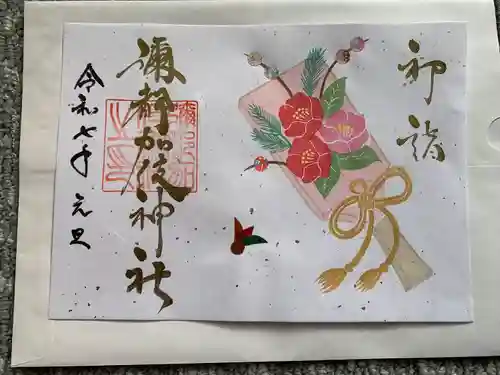 初詣
彌都加伎神社
令和七年 元旦